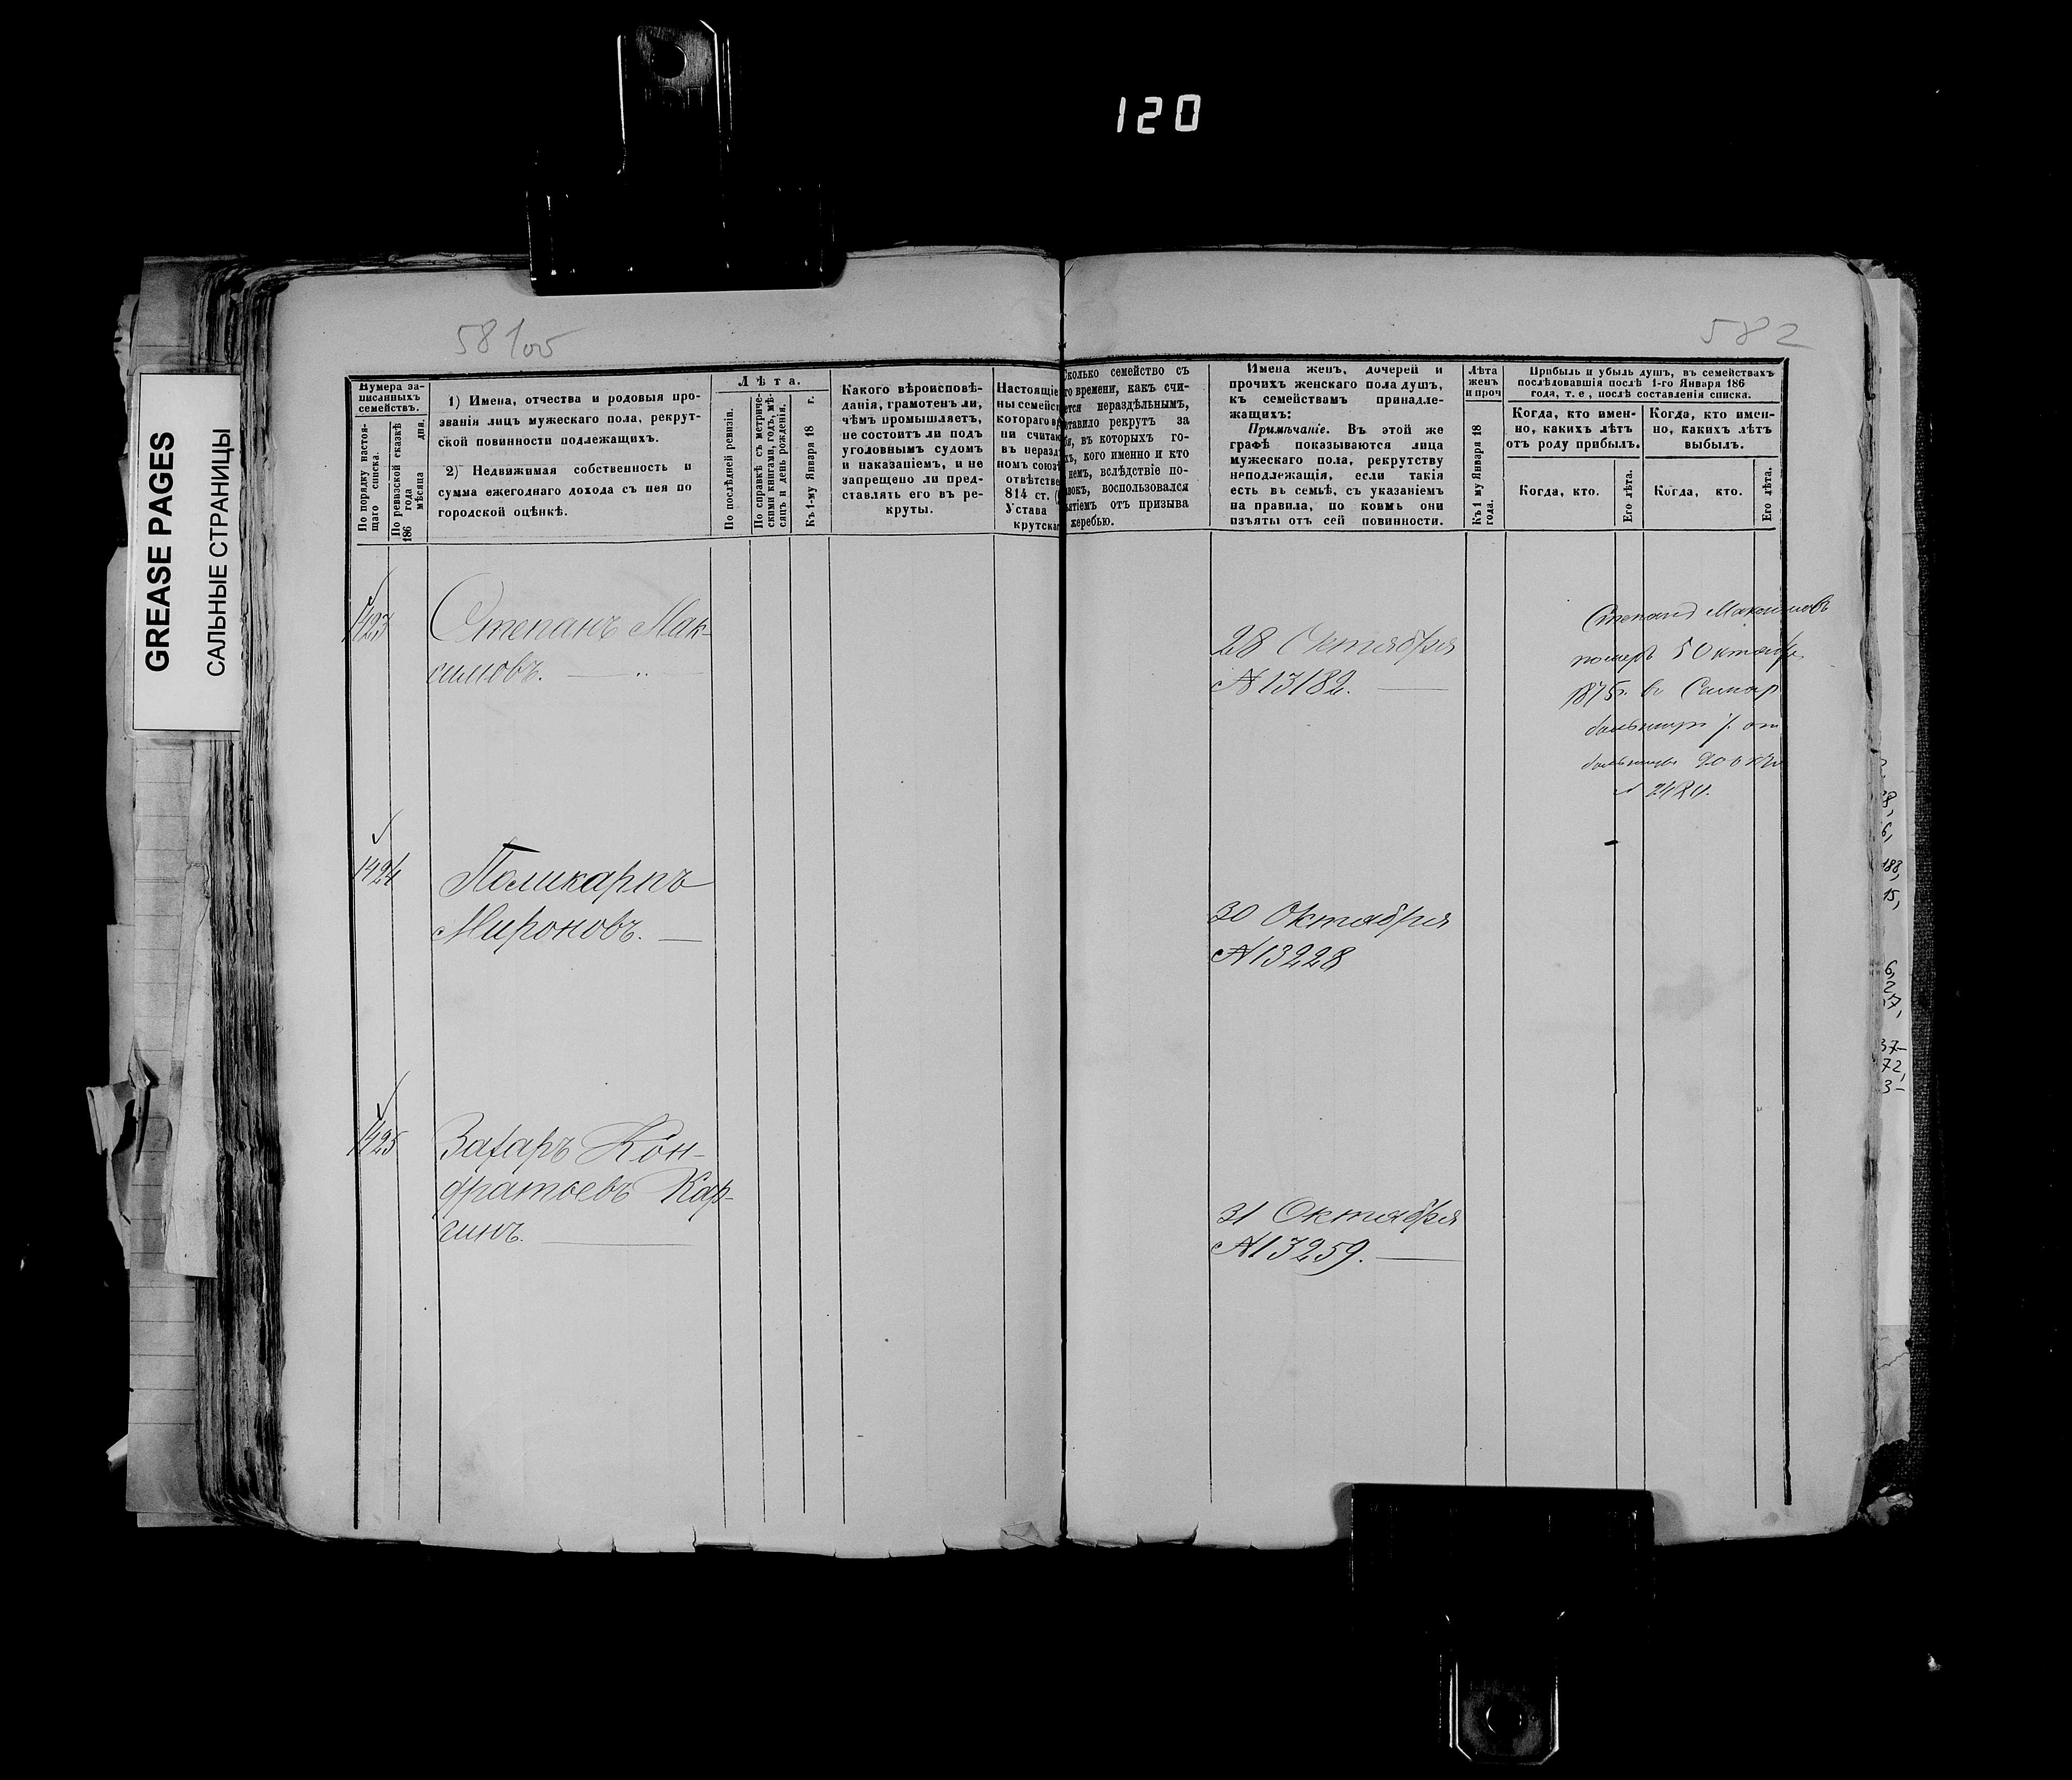 120
GREASE PAGES
САЛЬНЫЕ СТРАНИЦЫ
581об
582
Нумера за-
писанныхъ
семействъ.
По порядку настоя-
щаго списка.
По ревизской сказкѣ
186 года мѣсяца дня.
1) Имена, отчества и родовыя про-
званія лицъ мужескаго пола, рекрут-
ской повинности подлежащихъ.
2) Недвижимая собственность и
сумма ежегоднаго дохода съ нея по
городской оцѣнкѣ.
Лѣта.
По послѣдней ревизіи.
По справкѣ съ метриче-
скими книгами, годъ, мѣ-
сяцъ и день рожденія.
Къ 1-му Января 18 г.
Какого вѣроисповѣ-
данія, грамотенъ ли,
чѣмъ промышляетъ,
не состоитъ ли подъ
уголовнымъ судомъ
и наказаніемъ, и не
запрещено ли пред-
ставлять его въ ре-
круты.
Настоящіе
ны семейст
котораго в
ни считаю
въ неразд
номъ союз
отвѣтстве
814 ст. (
Устава
крутска
сколько семейство съ
го времени, какъ счи-
ется нераздѣльнымъ,
ставило рекрутъ за
бя, въ которыхъ го-
хъ, кого именно и кто
немъ, вслѣдствіе по-
авокъ, воспользовался
ятіемъ отъ призыва
жеребью.
Имена женъ, дочерей и
прочихъ женскаго пола душъ,
къ семействамъ принадле-
жащихъ:
Примѣчаніе. Въ этой же
графѣ показываются лица
мужескаго пола, рекрутству
неподлежащія, если такія
есть въ семьѣ, съ указаніемъ
на правила, по коимъ они
изъяты отъ сей повинности.
Лѣта
женъ
и проч
Къ 1 му Января 18
года.
Прибыль и убыль душъ, въ семействахъ
послѣдовавшія послѣ 1-го Января 186
года, т. е, послѣ составленія списка.
Когда, кто имен-
но, какихъ лѣтъ
отъ роду прибылъ.
Когда, кто имен-
но, какихъ лѣтъ
выбылъ.
Когда, кто.
Его лѣта.
Когда, кто.
Его лѣта.
1423
Степанъ Мак-
симовъ.
28 Октября
№ 13182.
Степанъ Максимовъ
померъ 5 Октябр
1875г. въ Самар
1424
Поликарпъ
Мироновъ.
30 Октября
№ 13228
1425
Захаръ Кон-
дратьевъ Кар-
гинъ.
31 Октября
№ 13259.